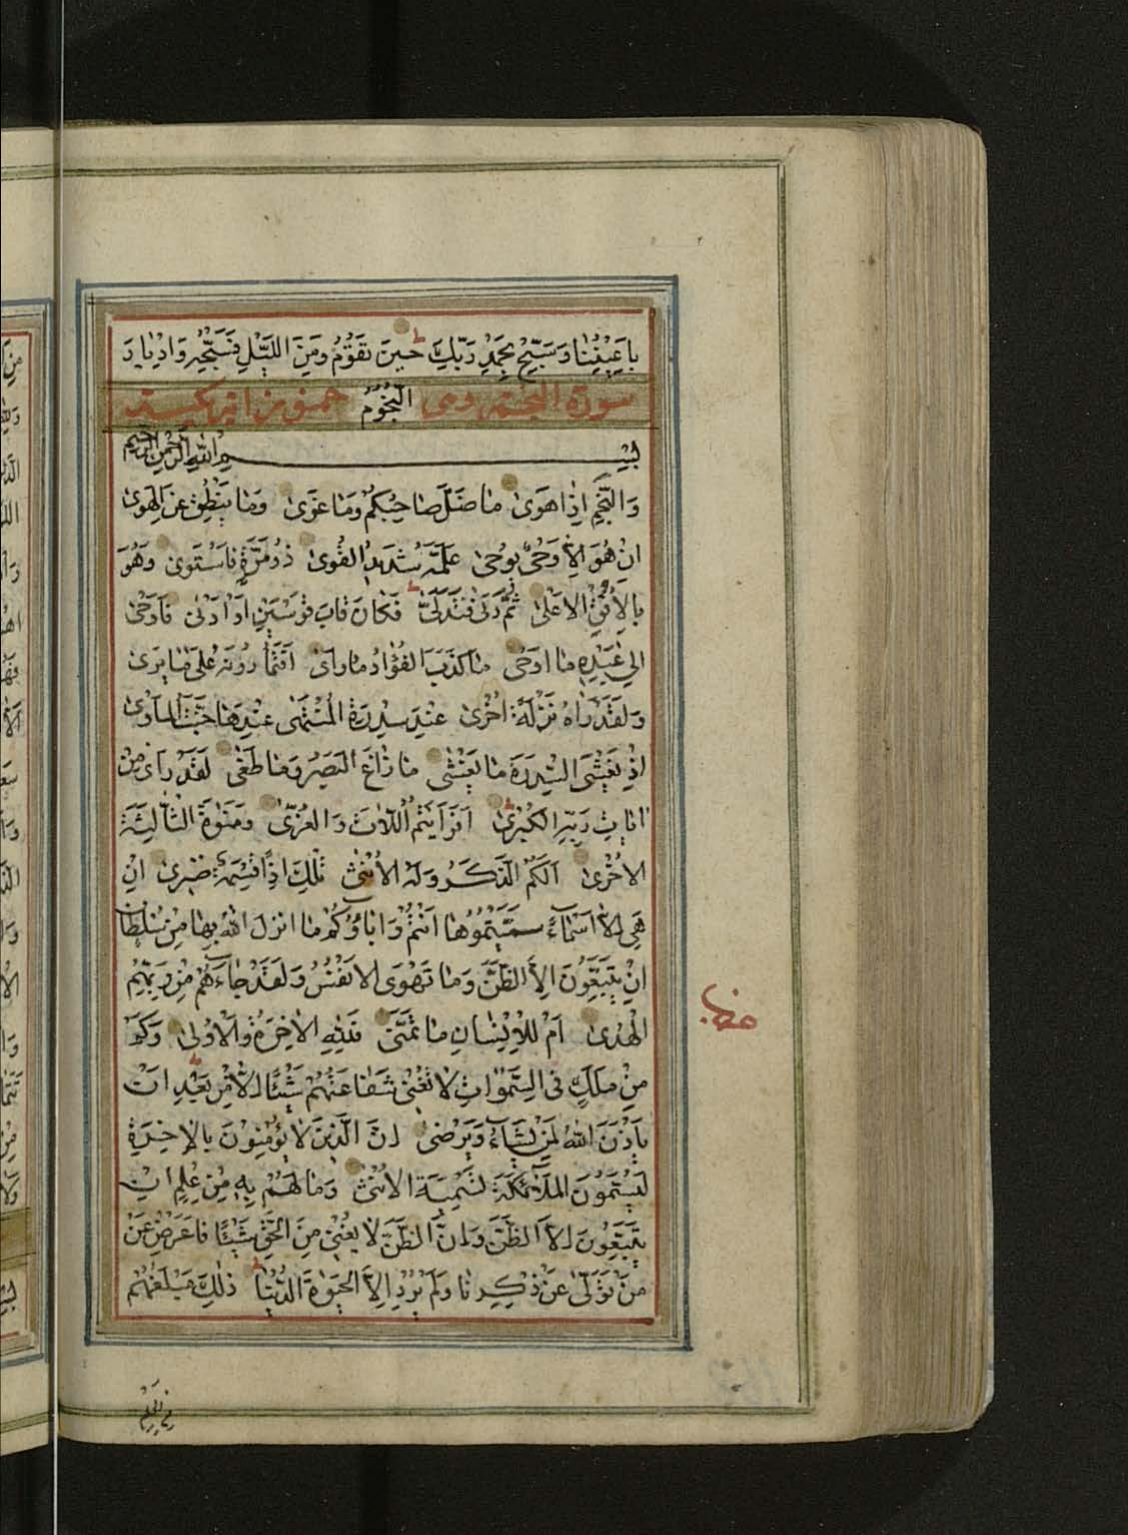 بِاَعْيُنِنَا وَسَبِّحْ بِحَمْدِ رَبِّكَ حينَ تَقُوْمُ وَمِنَ الَّيْلِ فَسَبِّحْهُ وَاِدْبَارَ
سورة النجم وهى النُّجُوْمِ
بِسْمِ اللّٰهِ الرَّحْمٰنِ الرَّحيم
وَالنَّجْمِ اِذَا هَوٰى مَا ضَلَّ صَاحِبُكُمْ وَمَا غَوٰى وَمَا يَنْطِقُ عَنِ الْهَوٰى
اِنْ هُوَ اِلَّا وَحْىٌ يُوحٰى عَلَّمَهُ شَدِيدُ الْقُوٰى ذُو مِرَّةٍ فَاسْتَوٰى وَهُوَ
بِالْاُفُقِ الْاَعْلٰى ثُمَّ دَنٰى فَتَدَلّٰى فَكَانَ قَابَ قَوْسَيْنِ اَوْ اَدْنٰى فَاَوْحٰى
اِلٰى عَبْدِهٖ مَا اَوْحٰى مَا كَذَبَ الْفُؤَادُ مَا رَاٰى اَفَتُمَارُونَهُ عَلٰى مَا يَرٰى
وَلَقَدْ رَاٰهُ نَزْلَةً اُخْرٰى عِنْدَ سِدْرَةِ الْمُنْتَهٰى عِنْدَهَا جَنَّةُ الْمَاْوٰى
اِذْ يَغْشَى السِّدْرَةَ مَا يَغْشٰى مَا زَاغَ الْبَصَرُ وَمَا طَغٰى لَقَدْ رَاٰى مِنْ
اٰيَاتِ رَبِّهِ الْكُبْرٰى اَفَرَاَيْتُمُ اللَّاتَ وَالْعُزّٰى وَمَنٰوةَ الثَّالِثَةَ
الْاُخْرٰى اَلَكُمُ الذَّكَرُ وَلَهُ الْاُنْثٰى تِلْكَ اِذًا قِسْمَةٌ ضِيزٰى اِنْ
هِىَ اِلَّا اَسْمَاءٌ سَمَّيْتُمُوْهَا اَنْتُمْ وَاٰبَاؤُكُمْ مَا اَنْزَلَ اللّٰهُ بِهَا مِنْ سُلْطَانٍ
اِنْ يَتَّبِعُونَ اِلَّا الظَّنَّ وَمَا تَهْوَى الْاَنْفُسُ وَلَقَدْ جَاءَهُمْ مِنْ رَبِّهِمُ
الْهُدٰى اَمْ لِلْاِنْسَانِ مَا تَمَنّٰى فَلِلّٰهِ الْاٰخِرَةُ وَالْاُولٰى وَكَمْ
مِنْ مَلَكٍ فِى السَّمٰوَاتِ لَا تُغْنى شَفَاعَتُهُمْ شَيْئًا اِلَّا مِنْ بَعْدِ اَنْ
يَاْذَنَ اللّٰهُ لِمَنْ يَشَاءُ وَيَرْضٰى اِنَّ الَّذينَ لَا يُؤْمِنُونَ بِالْاٰخِرَةِ
لَيُسَمُّونَ الْمَلٰئِكَةَ تَسْمِيَةَ الْاُنْثٰى وَمَا لَهُمْ بِهٖ مِنْ عِلْمٍ اِنْ
يَتَّبِعُونَ اِلَّا الظَّنَّ وَاِنَّ الظَّنَّ لَا يُغْنى مِنَ الْحَقِّ شَيْئًا فَاَعْرِضْ عَنْ
مَنْ تَوَلّٰى عَنْ ذِكْرِنَا وَلَمْ يُرِدْ اِلَّا الْحَيٰوةَ الدُّنْيَا ذٰلِكَ مَبْلَغُهُمْ
مِنَ الْعِلْمِ